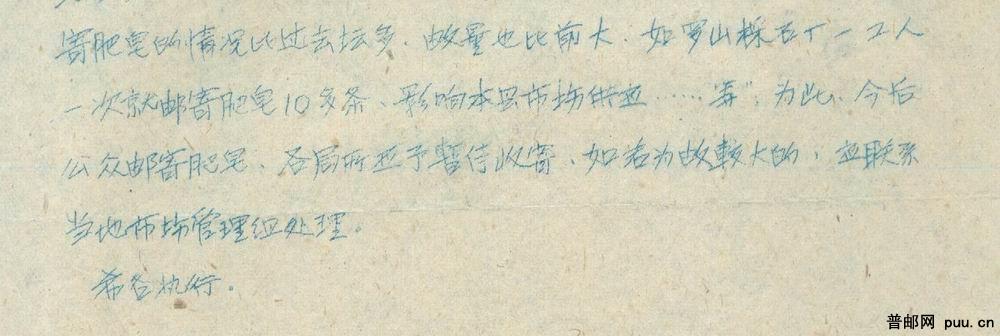 寄肥皂的情况比过去坛多，故量也比前大，如罗山棌石丁一工人
一次就邮寄肥皂10多条、影响本县市场供应……等"，为此、今后
公众邮寄肥皂、各局所应予暂停收寄、如若为故較大的，应联系
当地市场管理组处理。
希各执行。
普邮网 puu.cn